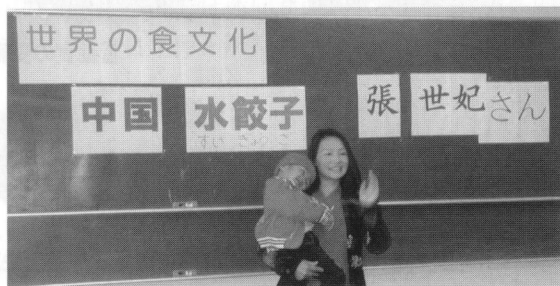 世界の食文化
中国 水餃子
すいぎょうざ
張 世妃さん